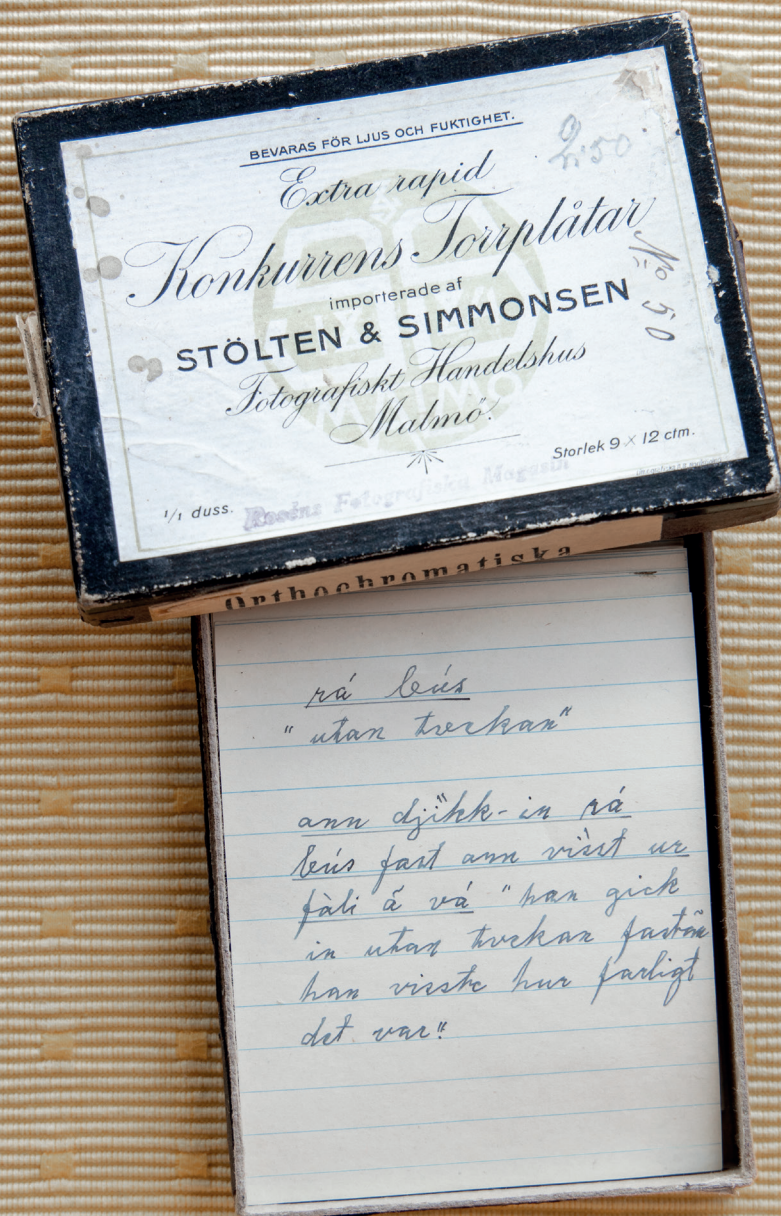 BEVARAS FÖR LJUS OCH FUKTIGHET.
2:50
Extra rapid
Konkurrens Torrplåtar
importerade af
No 50
STÖLTEN & SIMMONSEN
Fotografiskt Handelshus
Malmö.
Storlek 9 × 12 ctm.
1/1 duss.
Fotografiska Magasin
Orthochromatiska
rá bús
"utan tvekan"
ann djikk-in rá
bús fast ann visst ur
fàli å vá "han gick
in utan tvekan fastän
han visste hur farligt
det var."